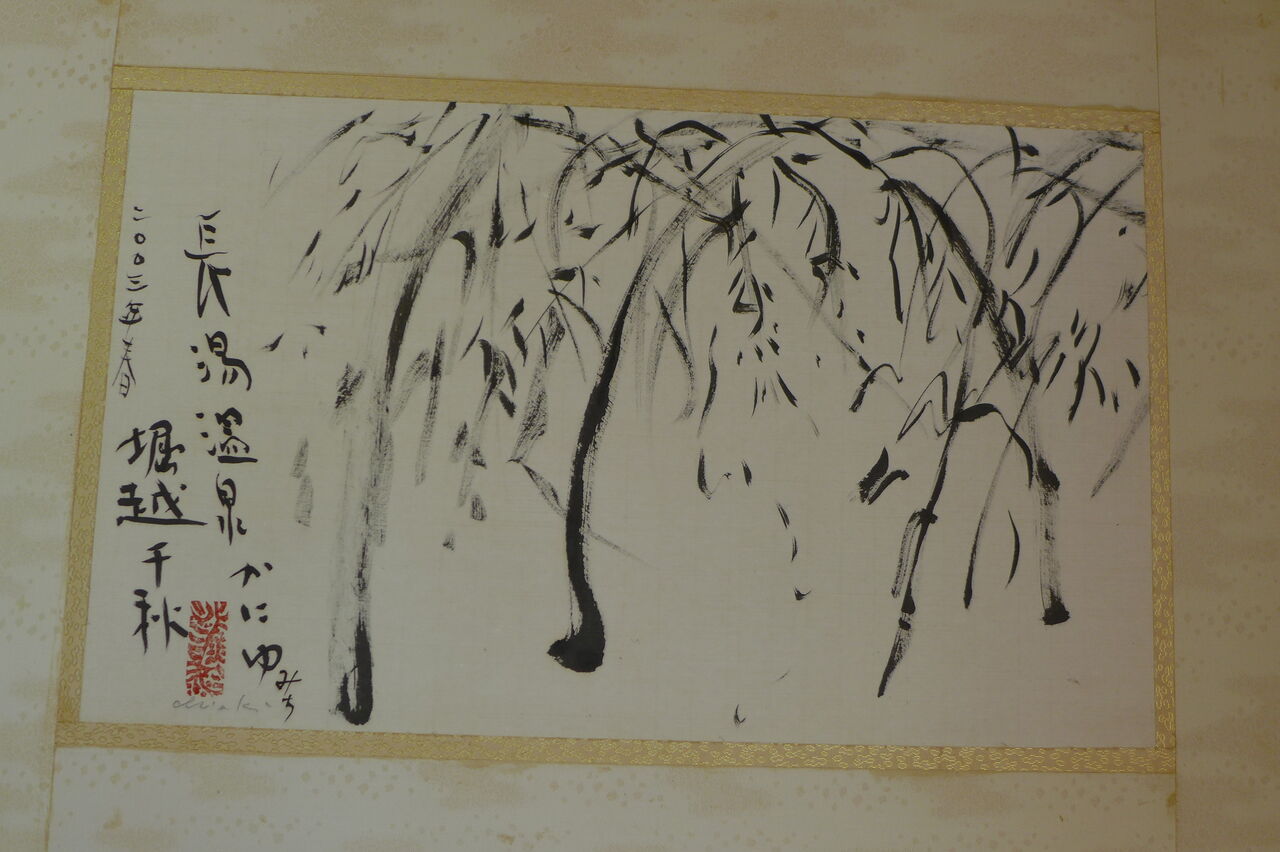 長湯温泉
かにゆみち
二〇〇三年春
堀越千秋
chiaki